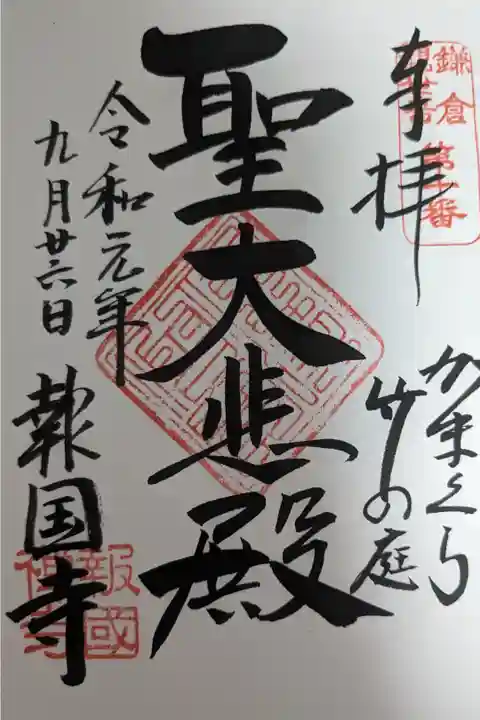 奉拝
鎌倉
第十番
かまくら
竹の庭
聖大悲殿
令和元年
九月廿六日
報国寺
報國